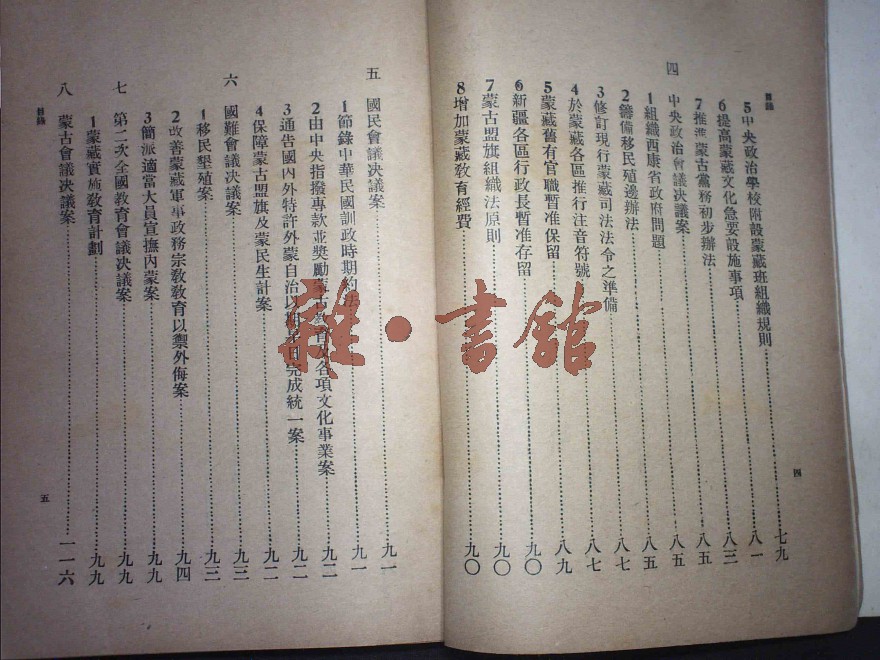 目錄
5中央政治學校附設蒙藏班組織規則 七九
6提高蒙藏文化急要設施事項 八一
7推進蒙古黨務初步辦法 八三
四 中央政治會議決議案 八五
1組織西康省政府問題 八五
2籌備移民殖邊辦法 八五
3修訂現行蒙藏司法法令之準備 八七
4於蒙藏各區推行注音符號 八七
5蒙藏舊有官職暫准保留 八九
6新疆各區行政長暫准存留 九〇
7蒙古盟旗組織法原則 九〇
8增加蒙藏教育經費 九〇
四
五 國民會議決議案 九一
1節錄中華民國訓政時期約法 九一
2由中央指撥專款並獎勵蒙古教育及各項文化事業案 九二
3通告國內外特許外蒙自治以期早日完成統一案 九二
4保障蒙古盟旗及蒙民生計案 九二
六 國難會議決議案 九三
1移民墾殖案 九三
2改善蒙藏軍事政務宗教教育以禦外侮案 九四
3簡派適當大員宣撫內蒙案 九九
七 第二次全國教育會議決議案 九九
1蒙藏實施教育計劃 九九
八 蒙古會議決議案 一一六
目錄
五
雜·書館